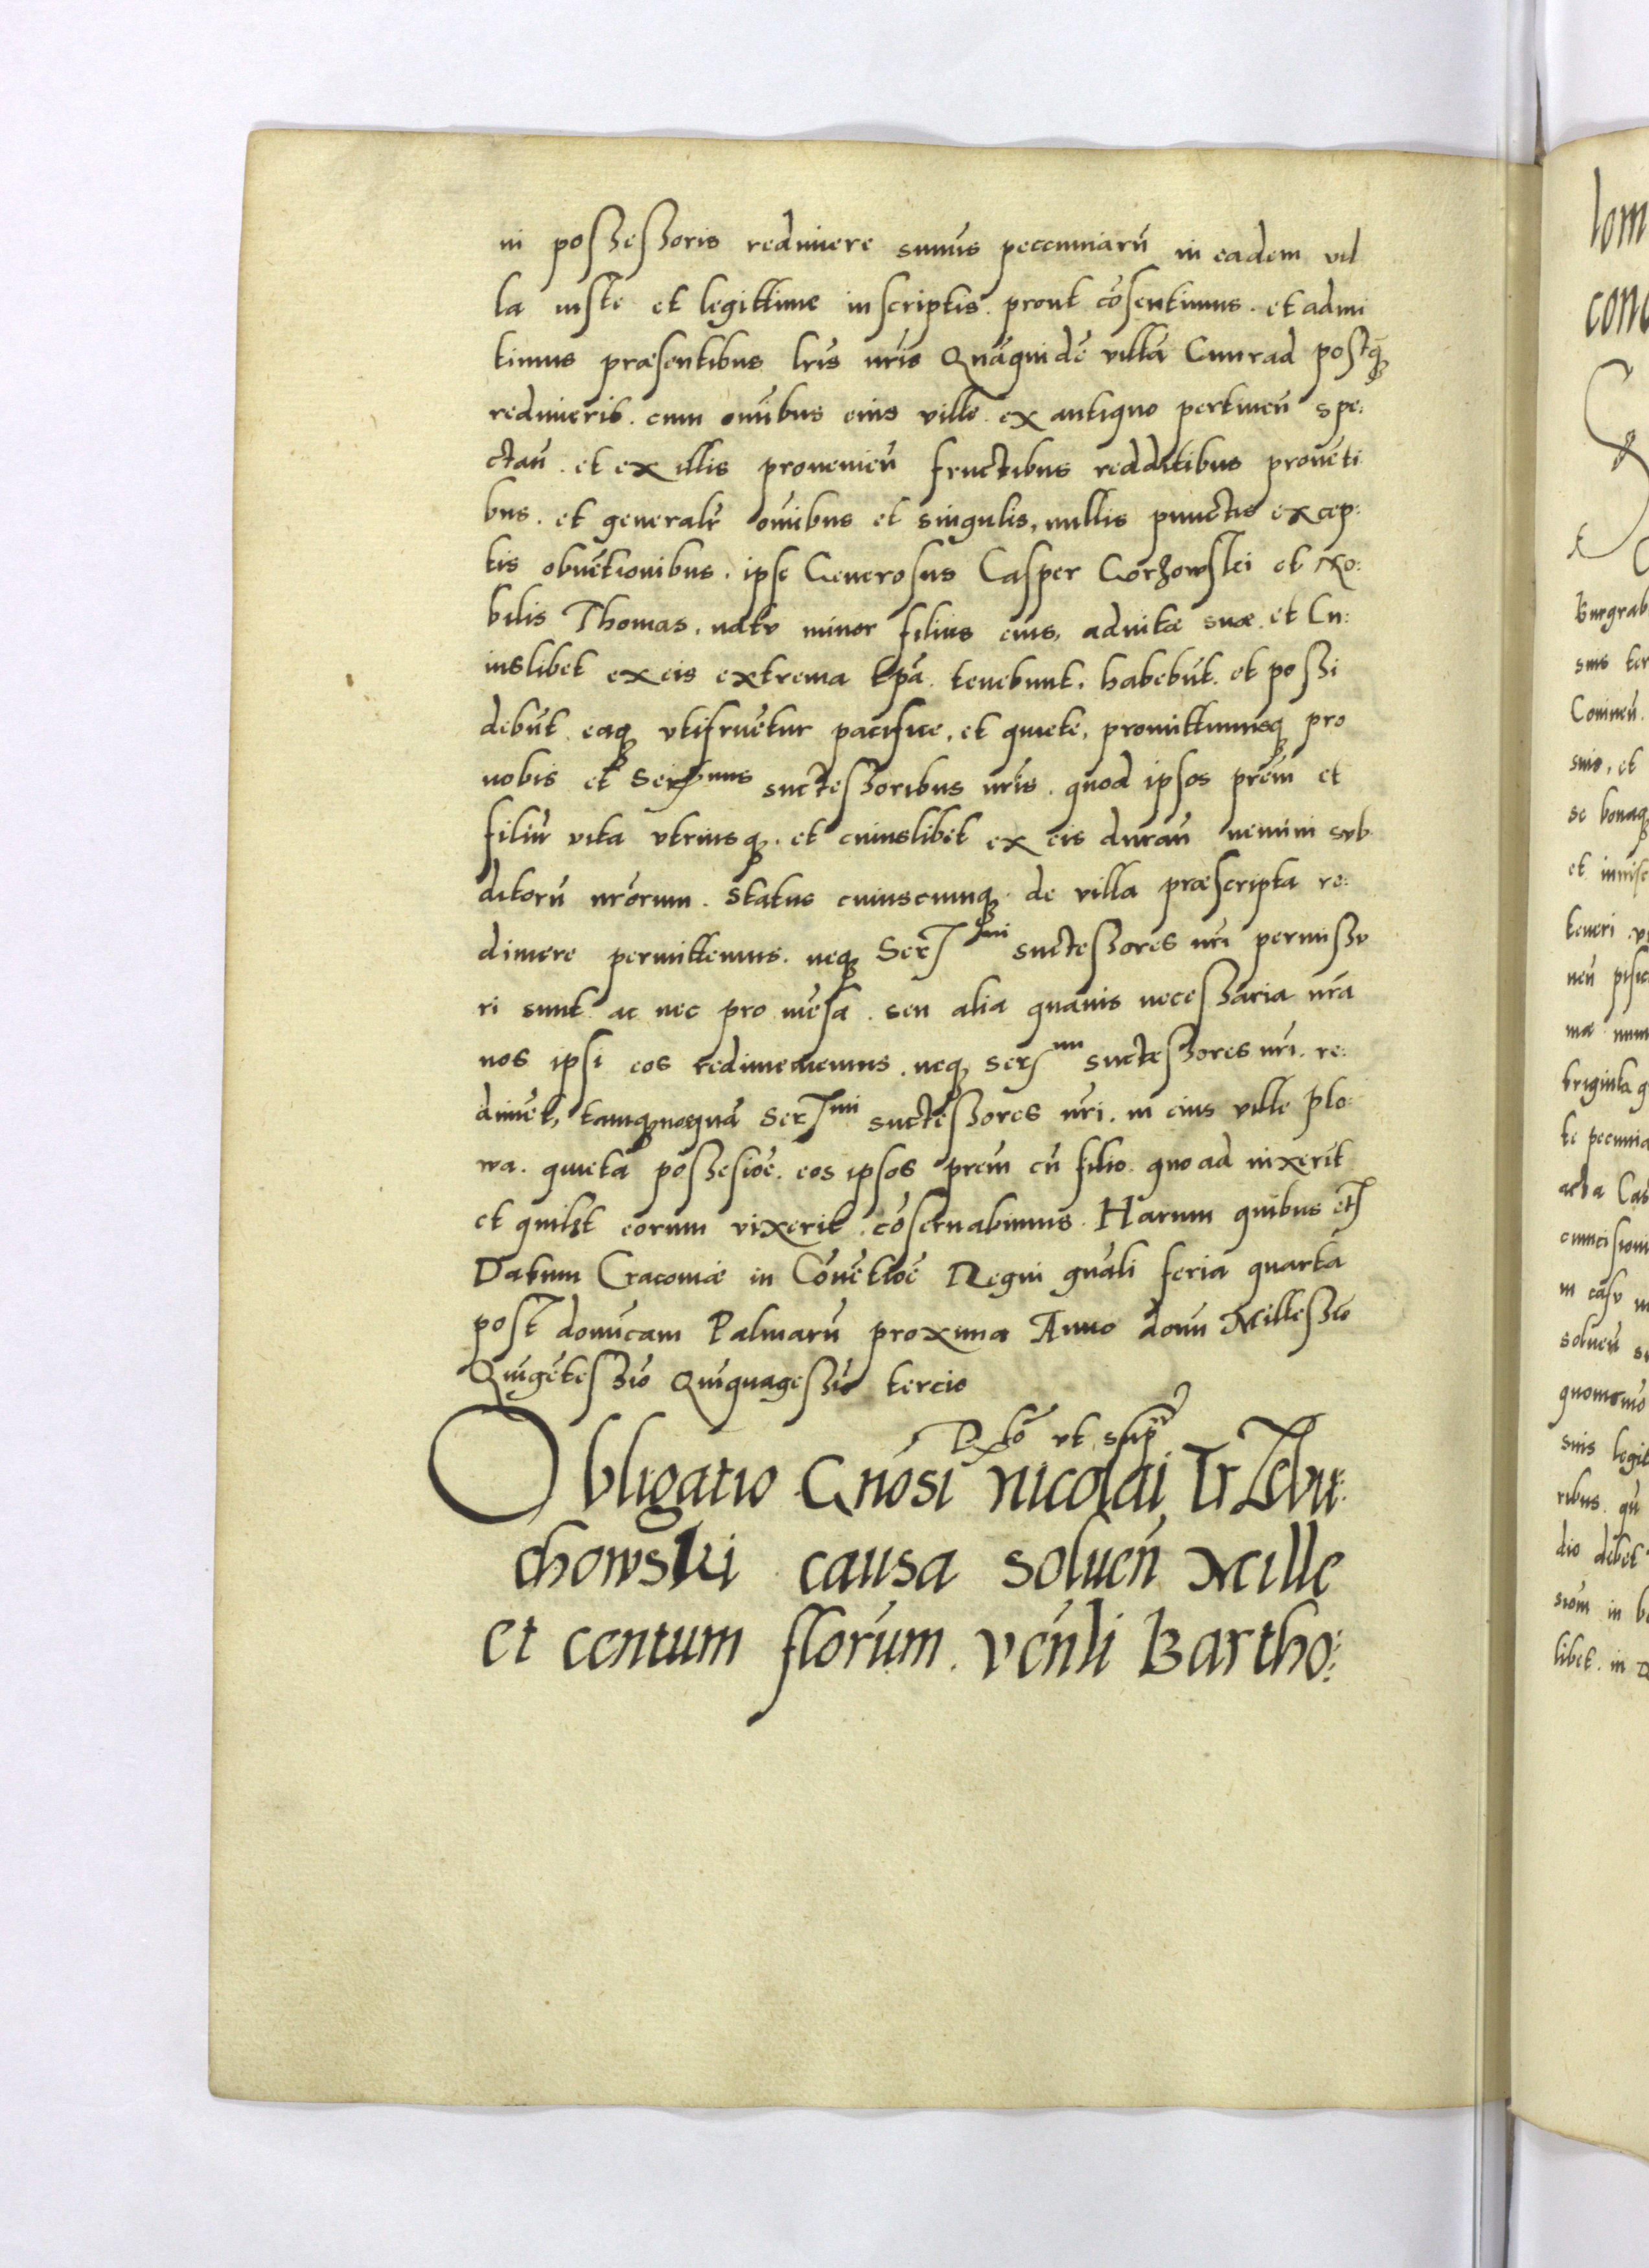 ni possessoris redimere sumūs peccuniarū in eadem vil
la iuste et legittime inscriptis. prout cōsentimus. et admi
timus præsentibus lr̄is nr̄is Quāquidē villā Cunrad postq̄
redimerit. cum om̄ibus eius ville ex antiquo pertineñ spe:
ctañ. et ex illis prouenieñ fructibus redditibus prouēti
bus. et generalr̄ om̄ibus et singulis, nullis punctis excep:
tis obuētionibus. ipse Generosus Casper Gorzowski et No:
bilis Thomas. natv minor filius eius, aduitæ suæ. et Cu:
iuslibet ex eis extrema tp̄a tenebunt, habebūt. et possi
debūt eaq vtifruētur pacifice, et quiete, promittimusq pro
nobis et Ser mus successoribus nr̄is. quod ipsos pr̄em et
filiū vita vtriusq. et cuiuslibet ex eis durañ nemini sub
ditorū nr̄orum. status cuiuscumq de villa præscripta re:
dimere permittemus. neq Ser mi successores nr̄i permissu
ri sunt ac nec pro mēsa. seu alia quauis necessaria nr̄a
nos ipsi eos redimemus. neq ser mi successores nr̄i. re:
dimēt, Ser mi successores nr̄i. in eius ville Plo:
wa. quieta possesiōe. eos ipsos pr̄em cū filio. quo ad vixerīt
et quilꝫt eorum vixerit. cōseruabimus. Harum quibus etꝫ
Datum Cracouiæ in Cōuētiōe Regni gn̄ali feria quarta
post domīcam Palmarū proxima Anno domī Millessīo
Quīgētessīo Quīquagessīo tercio
ut sup̄
Obligatio Gn̄osi Nicolai Trzebu:
chowski causa solueñ Mille
et centum florūm. Vēnli Bartho:
lom
conc
Burgrab
suis ter
Comineñ.
suio, et
se bonaq
et inuisc
teneri
neñ
mæ num
triginta q
te pecunia
acta Cas
in casu
solueñ
quomō
suis legit
ribus. qū
dio debet
siom in b
libet. in